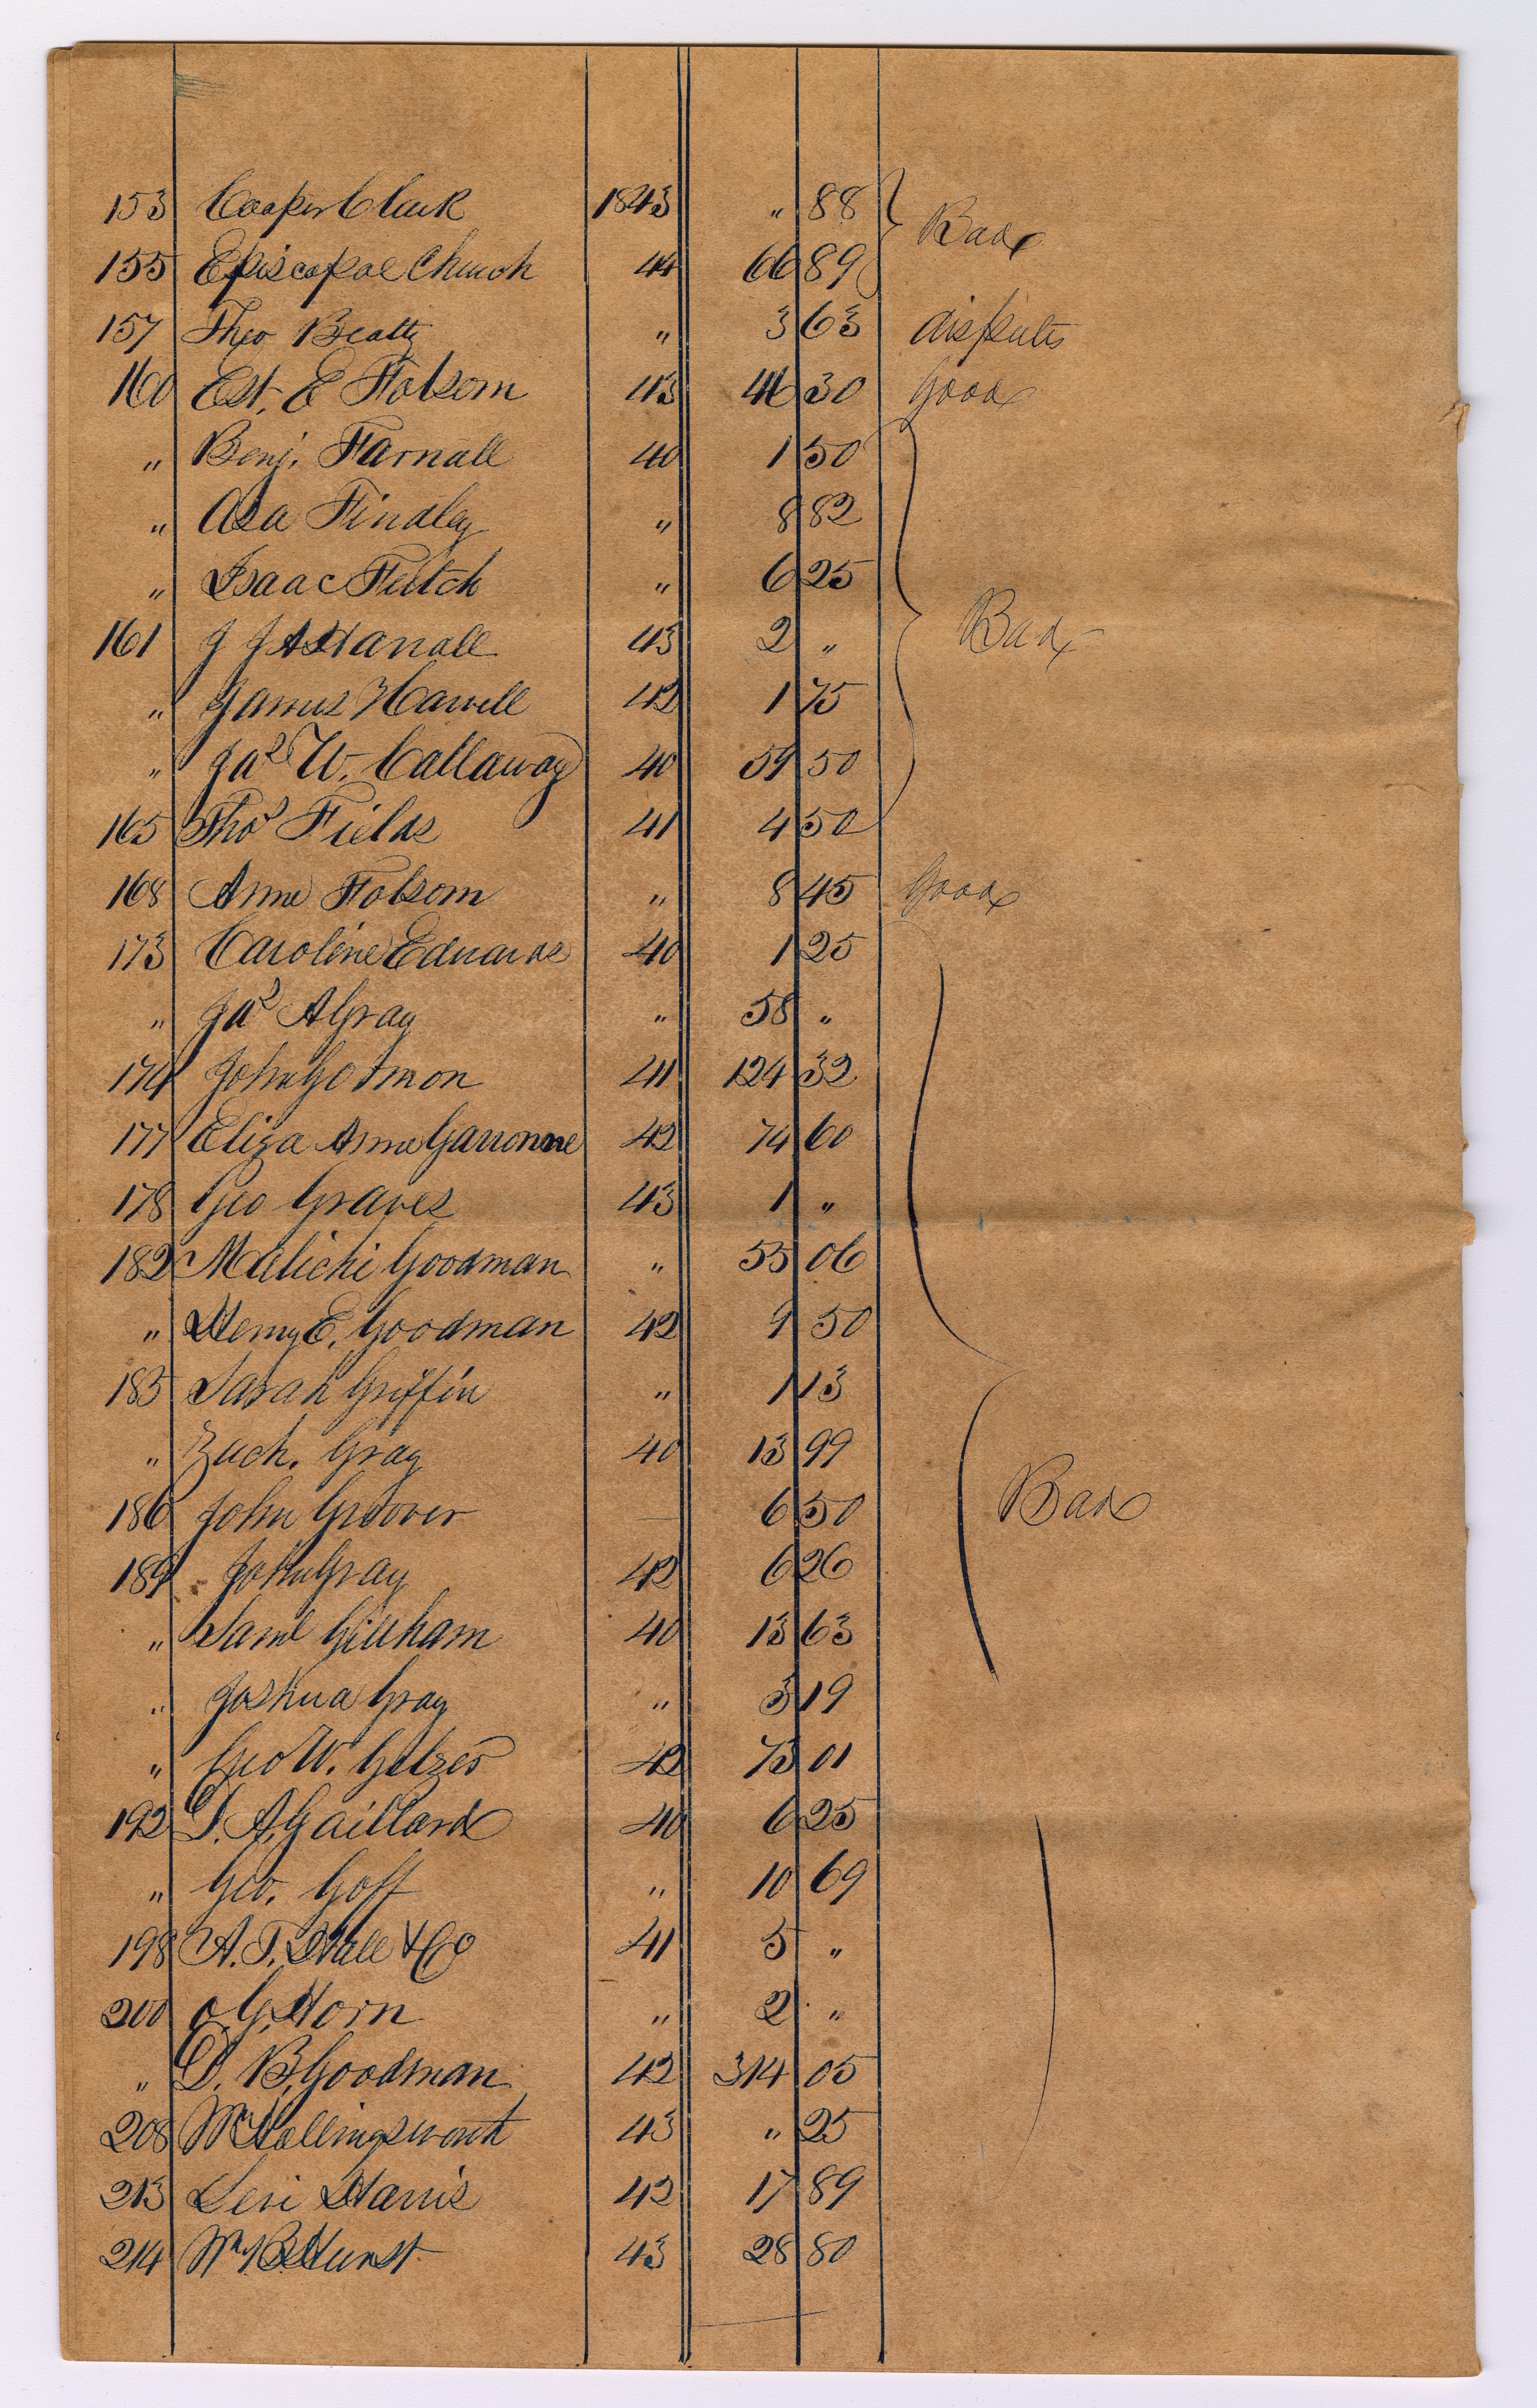 153 Cooper Cleuk 1843 " 88 Bad
155 Episcopal Church 44 66 89
157 Theo Beatty " 3 63 disputes
160 Est. E Folsom 43 46 30 Good
" Benj. Farnall 40 1 50
" Asa Findley " 8 82
" Isaac Feutch " 6 25
161 J J A Hanall 43 2 " Bad
" James Harvell 42 1 75
" Jas W. Callaway 40 59 50
165 Thos Fields 41 4 50
168 Anne Folsom " 8 45 Good
173 Caroline Edwards 40 1 25
" Jas A Gray " 58 "
174 John Gotmon 41 124 32
177 Eliza Anne Garronne 42 74 60
178 Geo Graves 43 1 "
182 Malichi Goodman " 55 06
" Henry E. Goodman 42 9 50
183 Sarah Griffin " 1 13
" Zach. Gray 40 13 99
186 John Groover — 6 50 Bad
189 John Gray 42 6 26
" Saml Gillham 40 13 63
" Joshua Gray " 3 19
" Geo W. Getzes 42 73 01
192 D. A. Gaillard 40 6 25
" Geo. Goff " 10 69
198 A. T. Hall & Co 41 5 "
200 O. G. Horn " 2 "
" D. B. Goodman 42 314 05
208 Wm Hollingsworth 43 " 25
213 Levi Harris 42 17 89
214 Wm B Hurst 43 28 80